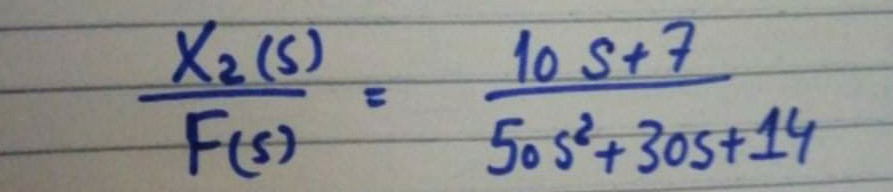 X₂(s) / F(s) = 10 s+7 / 50s²+30s+14